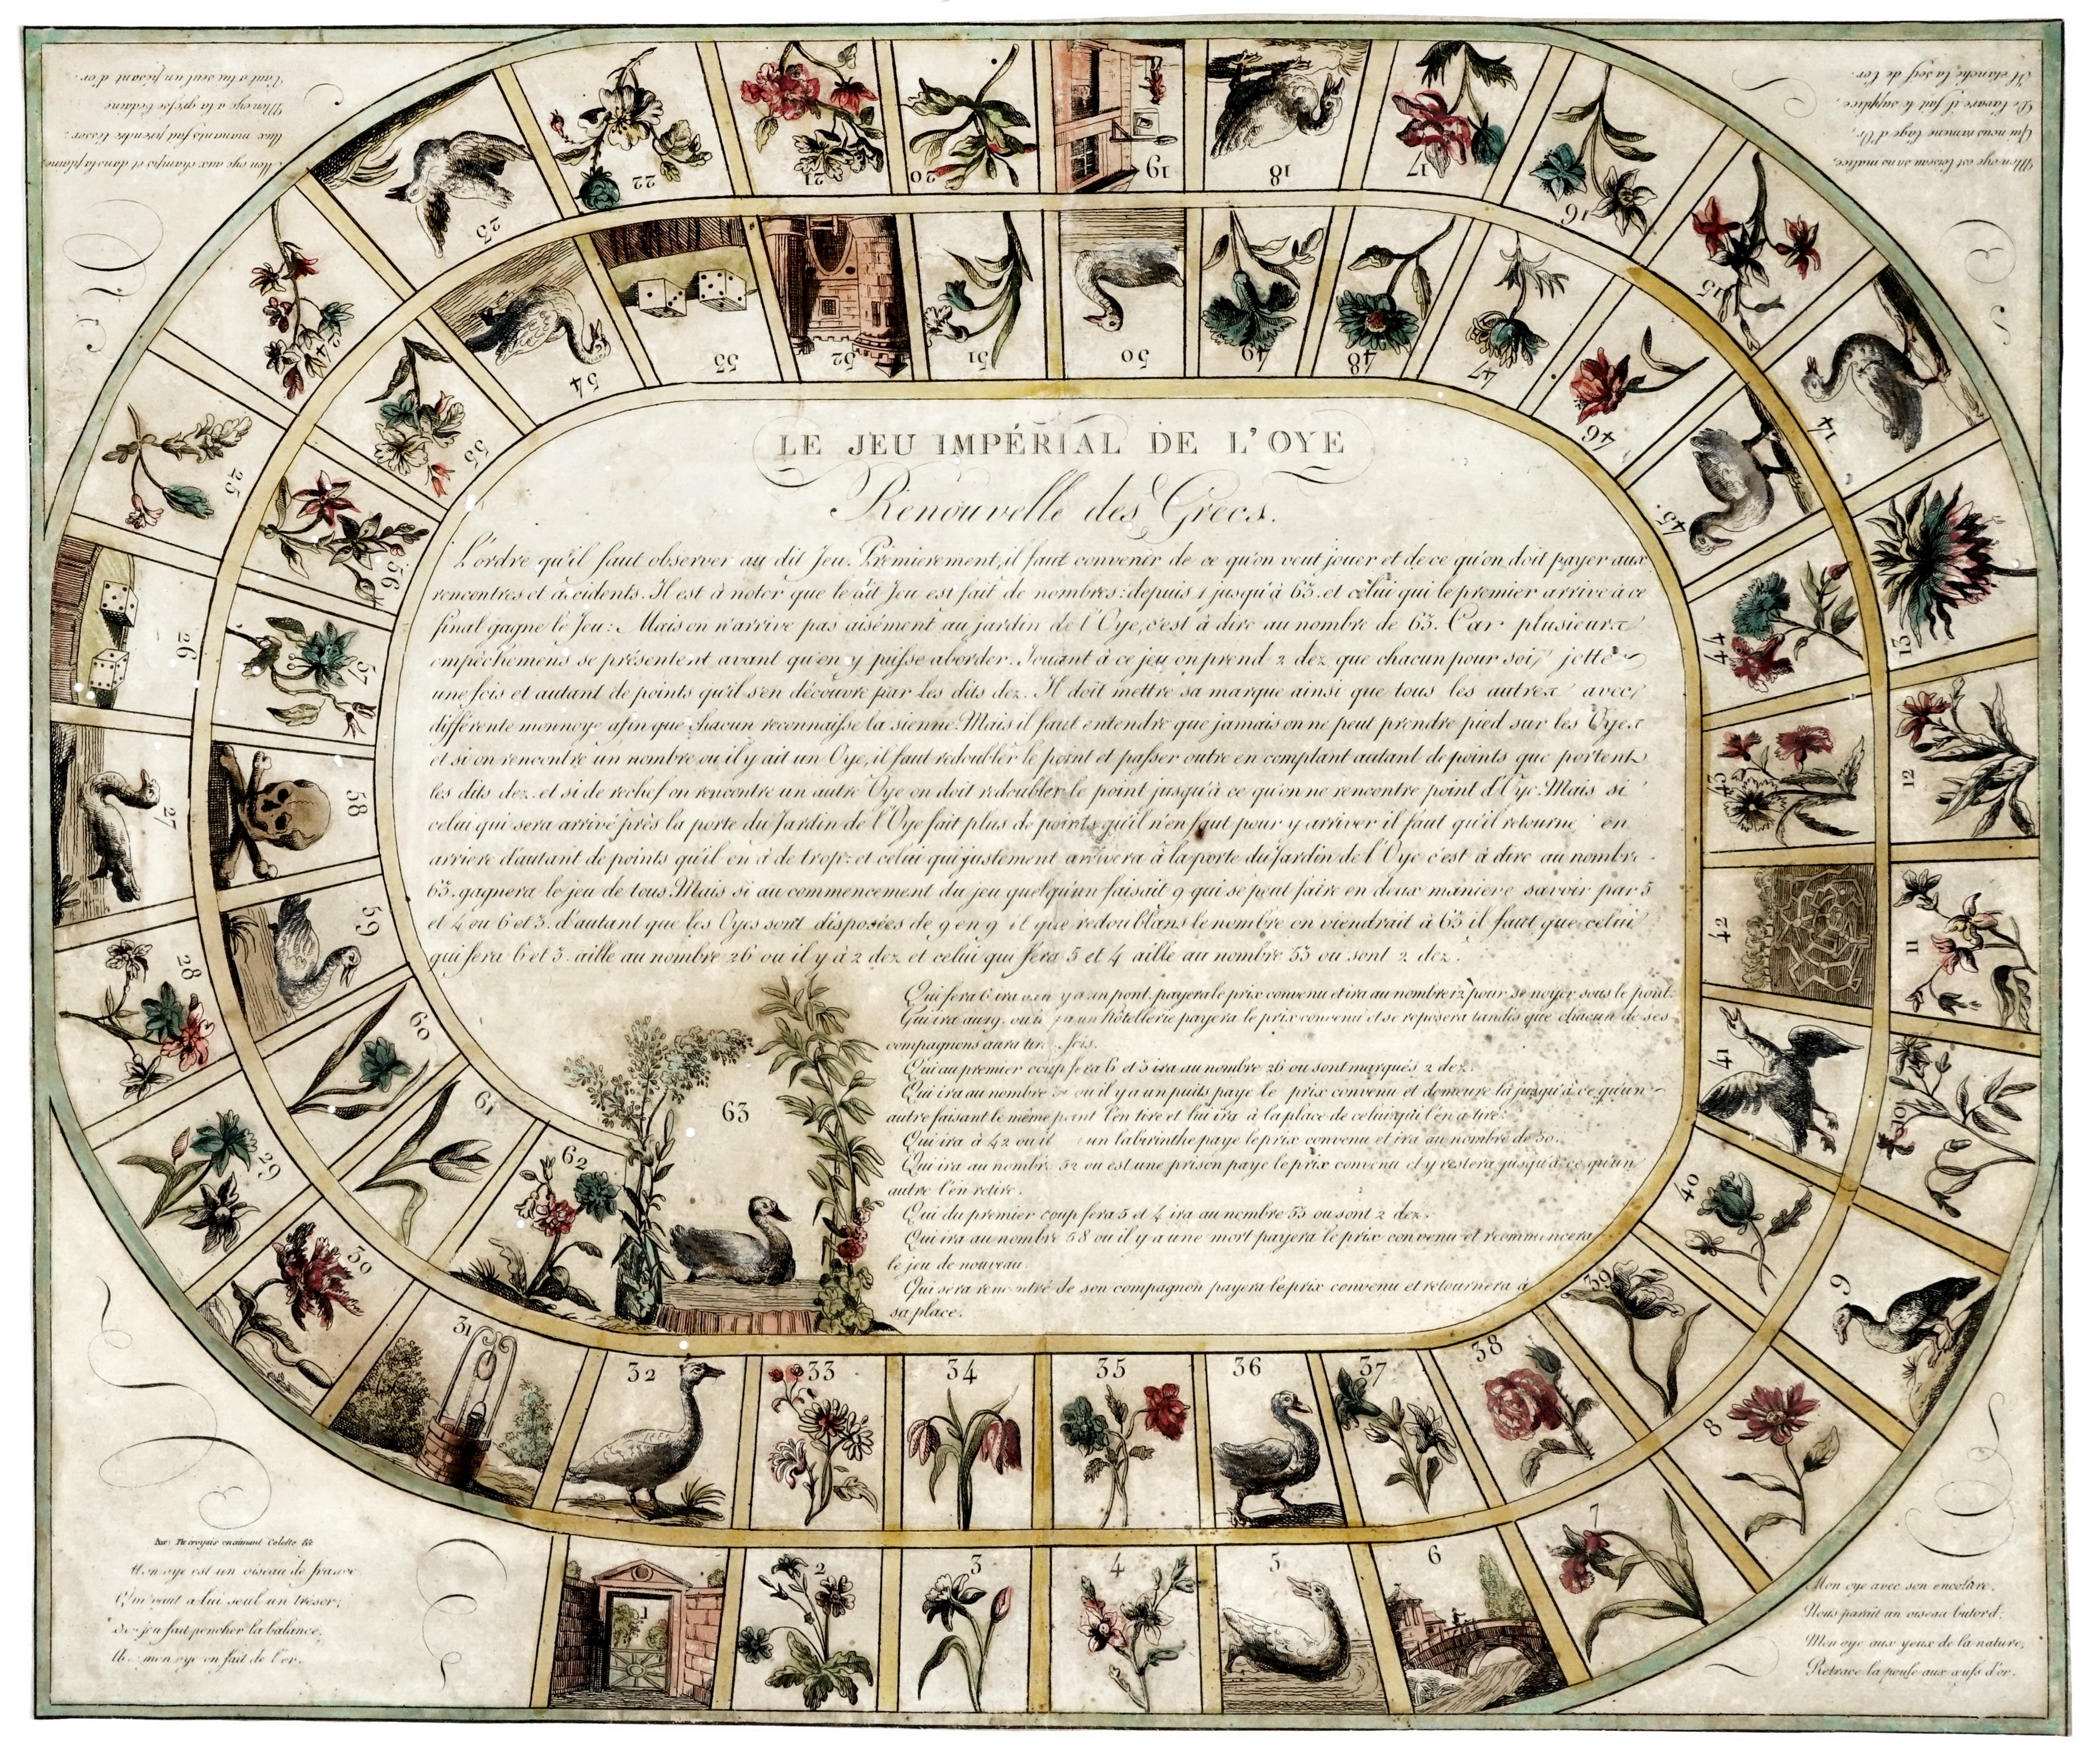 LE JEU IMPÉRIAL DE L'OYE
Renouvelle des Grecs.
L'ordre qu'il faut observer au dit Jeu. Premierement, il faut convenir de ce qu'on veut jouer et de ce qu'on doit payer aux
rencontres et accidents. Il est à noter que le dit Jeu est fait de nombres: depuis 1 jusqu'à 63. et celui qui le premier arrive à ce
final gagne le Jeu: Mais on n'arrive pas aisément au jardin de l'Oye, c'est à dire au nombre de 63. Car plusieurs
empêchemens se présentent avant qu'on y puisse aborder. Jouant à ce jeu on prend 2 dez que chacun pour soi jette
une fois et autant de points qu'il s'en découvre par les dits dez. Il doit mettre sa marque ainsi que tous les autres avec
différente monnoye afin que chacun reconnaisse la sienne. Mais il faut entendre que jamais on ne peut prendre pied sur les Oyes
et si on rencontre un nombre ou il y ait un Oye, il faut redoubler le point et passer outre en comptant autant de points que portent
les dits dez. et si de rechef on rencontre un autre Oye on doit redoubler le point jusqu'à ce qu'on ne rencontre point d'Oye. Mais si
celui qui sera arrivé près la porte du Jardin de l'Oye fait plus de points qu'il n'en faut pour y arriver il faut qu'il retourne en
arriere d'autant de points qu'il en à de trop: et celui qui justement arrivera à la porte du Jardin de l'Oye c'est à dire au nombre
63. gagnera le jeu de tous. Mais si au commencement du jeu quelqu'un faisait 9 qui se peut faire en deux maniere savoir par 5
et 4 ou 6 et 3. d'autant que les Oyes sont disposées de 9 en 9 il que redoublans le nombre on viendrait à 63 il faut que celui
qui fera 6 et 3. aille au nombre 26 ou il y à 2 dez et celui qui fera 5 et 4 aille au nombre 53 ou sont 2 dez.
Qui fera 6 ira y a un pont, payera le prix convenu et ira au nombre 12 pour se noyer sous le pont.
Qui ira au 19. ou un hôtellerie payera le prix convenu et se reposera tandis que chacun de ses
compagnons aura tiré fois.
Qui au premier coup fera 6 et 3 ira au nombre 26 ou sont marqués 2 dez.
Qui ira au nombre ou il y a un puits paye le prix convenu et demeure là jusqu'à ce qu'un
autre faisant le même point l'en tire et lui ira à la place de celui qui l'en a tiré.
Qui ira à 42 ou il un labirinthe paye le prix convenu et ira au nombre de 30.
Qui ira au nombre 52 ou est une prison paye le prix convenu et y restera jusqu'à ce qu'un
autre l'en retire.
Qui du premier coup fera 5 et 4 ira au nombre 53 ou sont 2 dez.
Qui ira au nombre 58 ou il y a une mort payera le prix convenu et recommencera
le jeu de nouveau.
Qui sera rencontré de son compagnon payera le prix convenu et retournera à
sa place.
1
2
3
4
5
6
7
8
9
10
11
12
13
14
15
16
17
18
19
20
21
22
23
24
25
26
27
28
29
30
31
32
33
34
35
36
37
38
39
40
41
42
43
44
45
46
47
48
49
50
51
52
53
54
55
56
57
58
59
60
61
62
63
Air: Tu croyais en aimant Colette &c
Mon oye est un oiseau de france
Qui vaut a lui seul un trésor;
jeu fait pencher la balance,
mon oye en fait de l'or.
Mon oye avec son encolure,
Nous parait un oiseau butord;
Mon oye, aux yeux de la nature,
Retrace la poule aux œufs d'or.
Mon oye est l'oiseau sans malice,
Qui nous ramene l'age d'Or,
De l'avare il fait le supplice,
Il étanche la soif de l'or.
Mon oye aux champs et dans la plaine,
Aux manants fait prendre l'essor;
Mon oye a la grosse bedaine
Vaut a lui seul un pesant d'or.